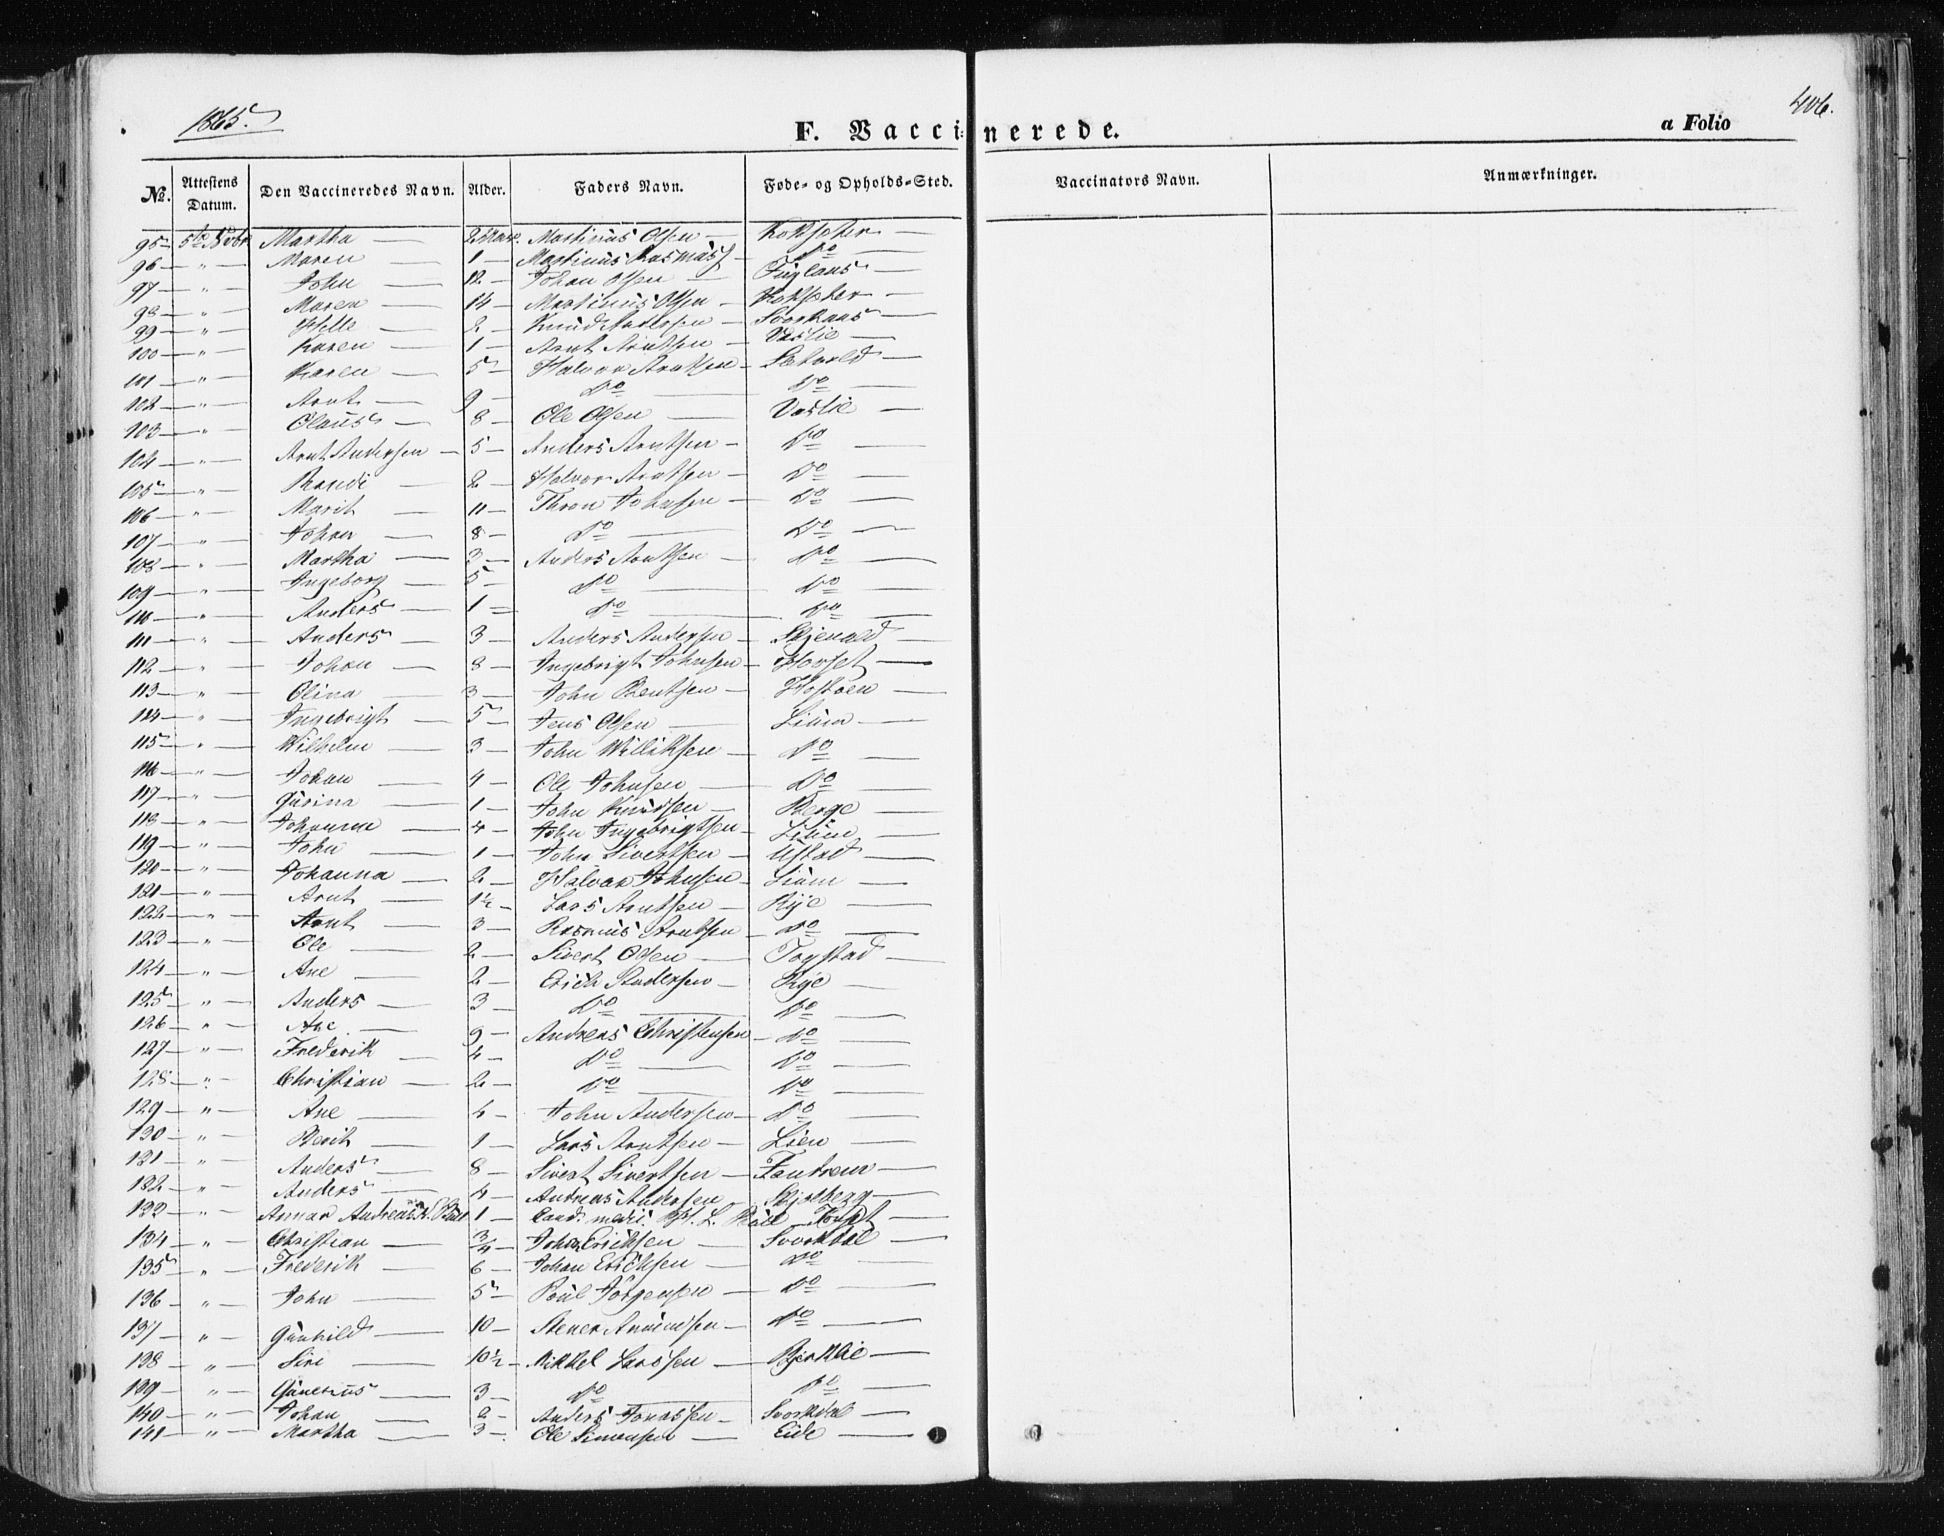 1865.
406.
F. Vaccinerede.
a Folio
No.
Attestens Datum.
Den Vaccineredes Navn.
Alder.
Faders Navn.
Føde- og Opholds-Sted.
Vaccinators Navn.
Anmærkninger.
95 — Martha — Martinus Olsen —
96 — „ — Maren — 1 — Martinus — Do —
97 — „ — John — 12 — Johan Olsen —
98 — „ — Maren — 14 — Martinus Olsen —
99 — „ — 2 — Knud —
100 — „ — Karen — 1 — Arnt Arntsen —
101 — „ — Karen — 5 — Halvor Arntsen —
102 — „ — Arnt — 9 — Do — Do —
103 — „ — Olaus — 8 — Ole Olsen —
104 — „ — Arnt Andersen — 5 — Anders Arntsen — Do —
105 — „ — Randi — 2 — Halvor Arntsen — Do —
106 — „ — Marit — 11 — Thron Johnsen — Do —
107 — „ — Johan — 8 — Do — Do —
108 — „ — Martha — 3 — Anders Arntsen — Do —
109 — „ — Ingeborg — 5 — Do — Do —
110 — „ — Anders — 1 — Do — Do —
111 — „ — Anders — 3 — Anders Andersen —
112 — „ — Johan — 8 — Ingebrigt Johnsen —
113 — „ — Olina — 3 — John Bentsen —
114 — „ — Ingebrigt — 5 — Jens Olsen — Lium —
115 — „ — Wilhelm — 3 — John Williksen — Do —
116 — „ — Johan — 4 — Ole Johnsen — Do —
117 — „ — Gurina — 1 — John Knudsen — Berge —
118 — „ — 4 — John Ingebrigtsen — Lium —
119 — „ — John — 1 — John Sivertsen — Ustad —
120 — „ — Johanna — 2 — Halvor Johnsen — Lium —
121 — „ — Arnt — 1½ — Lars Arntsen — Rye —
122 — „ — Arnt — 3 — Rasmus Arntsen — Do —
123 — „ — Ole — 2 — Sivert Olsen — Togstad —
124 — „ — Ane — 2 — Erich Andersen — Rye —
125 — „ — Anders — 3 — Do — Do —
126 — „ — Ane — 9 — Andreas Christensen — Do —
127 — „ — Frederik — 4 — Do — Do —
128 — „ — Christian — 2 — Do — Do —
129 — „ — Ane — 4 — John Andersen — Do —
130 — „ — Berit — 1 — Lars Arntsen — Lien —
131 — „ — Anders — 8 — Sivert Sivertsen —
132 — „ — Anders — 4 — Andreas Andersen
133 — „ — 1 — Cand. med.
134 — „ — Christian — ¾ — John Eriksen — Svorkdal —
135 — „ — Frederik — 6 — Johan Erichsen — Do —
136 — „ — John — 5 — Poul Jørgensen — Do —
137 — „ — Gunhild — 10 — Do —
138 — „ — Siri — 10½ — Mikkel Larssen — Bjerklie —
139 — „ — 3 — Do — Do —
140 — „ — Johan — 2 — Anders Jonassen — Svorkdal —
141 — „ — Martha — 3 — Ole Simonsen — Eide —